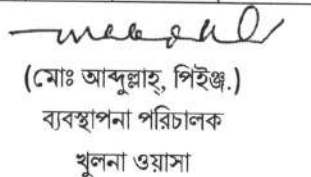 (মোঃ আব্দুল্লাহ্, পিইঞ্জ.)
ব্যবস্থাপনা পরিচালক
খুলনা ওয়াসা